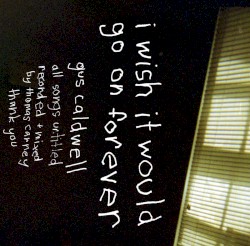 i wish it would
go on forever
gus caldwell
all songs untitled
recorded + mixed
by thomas carney
thank you